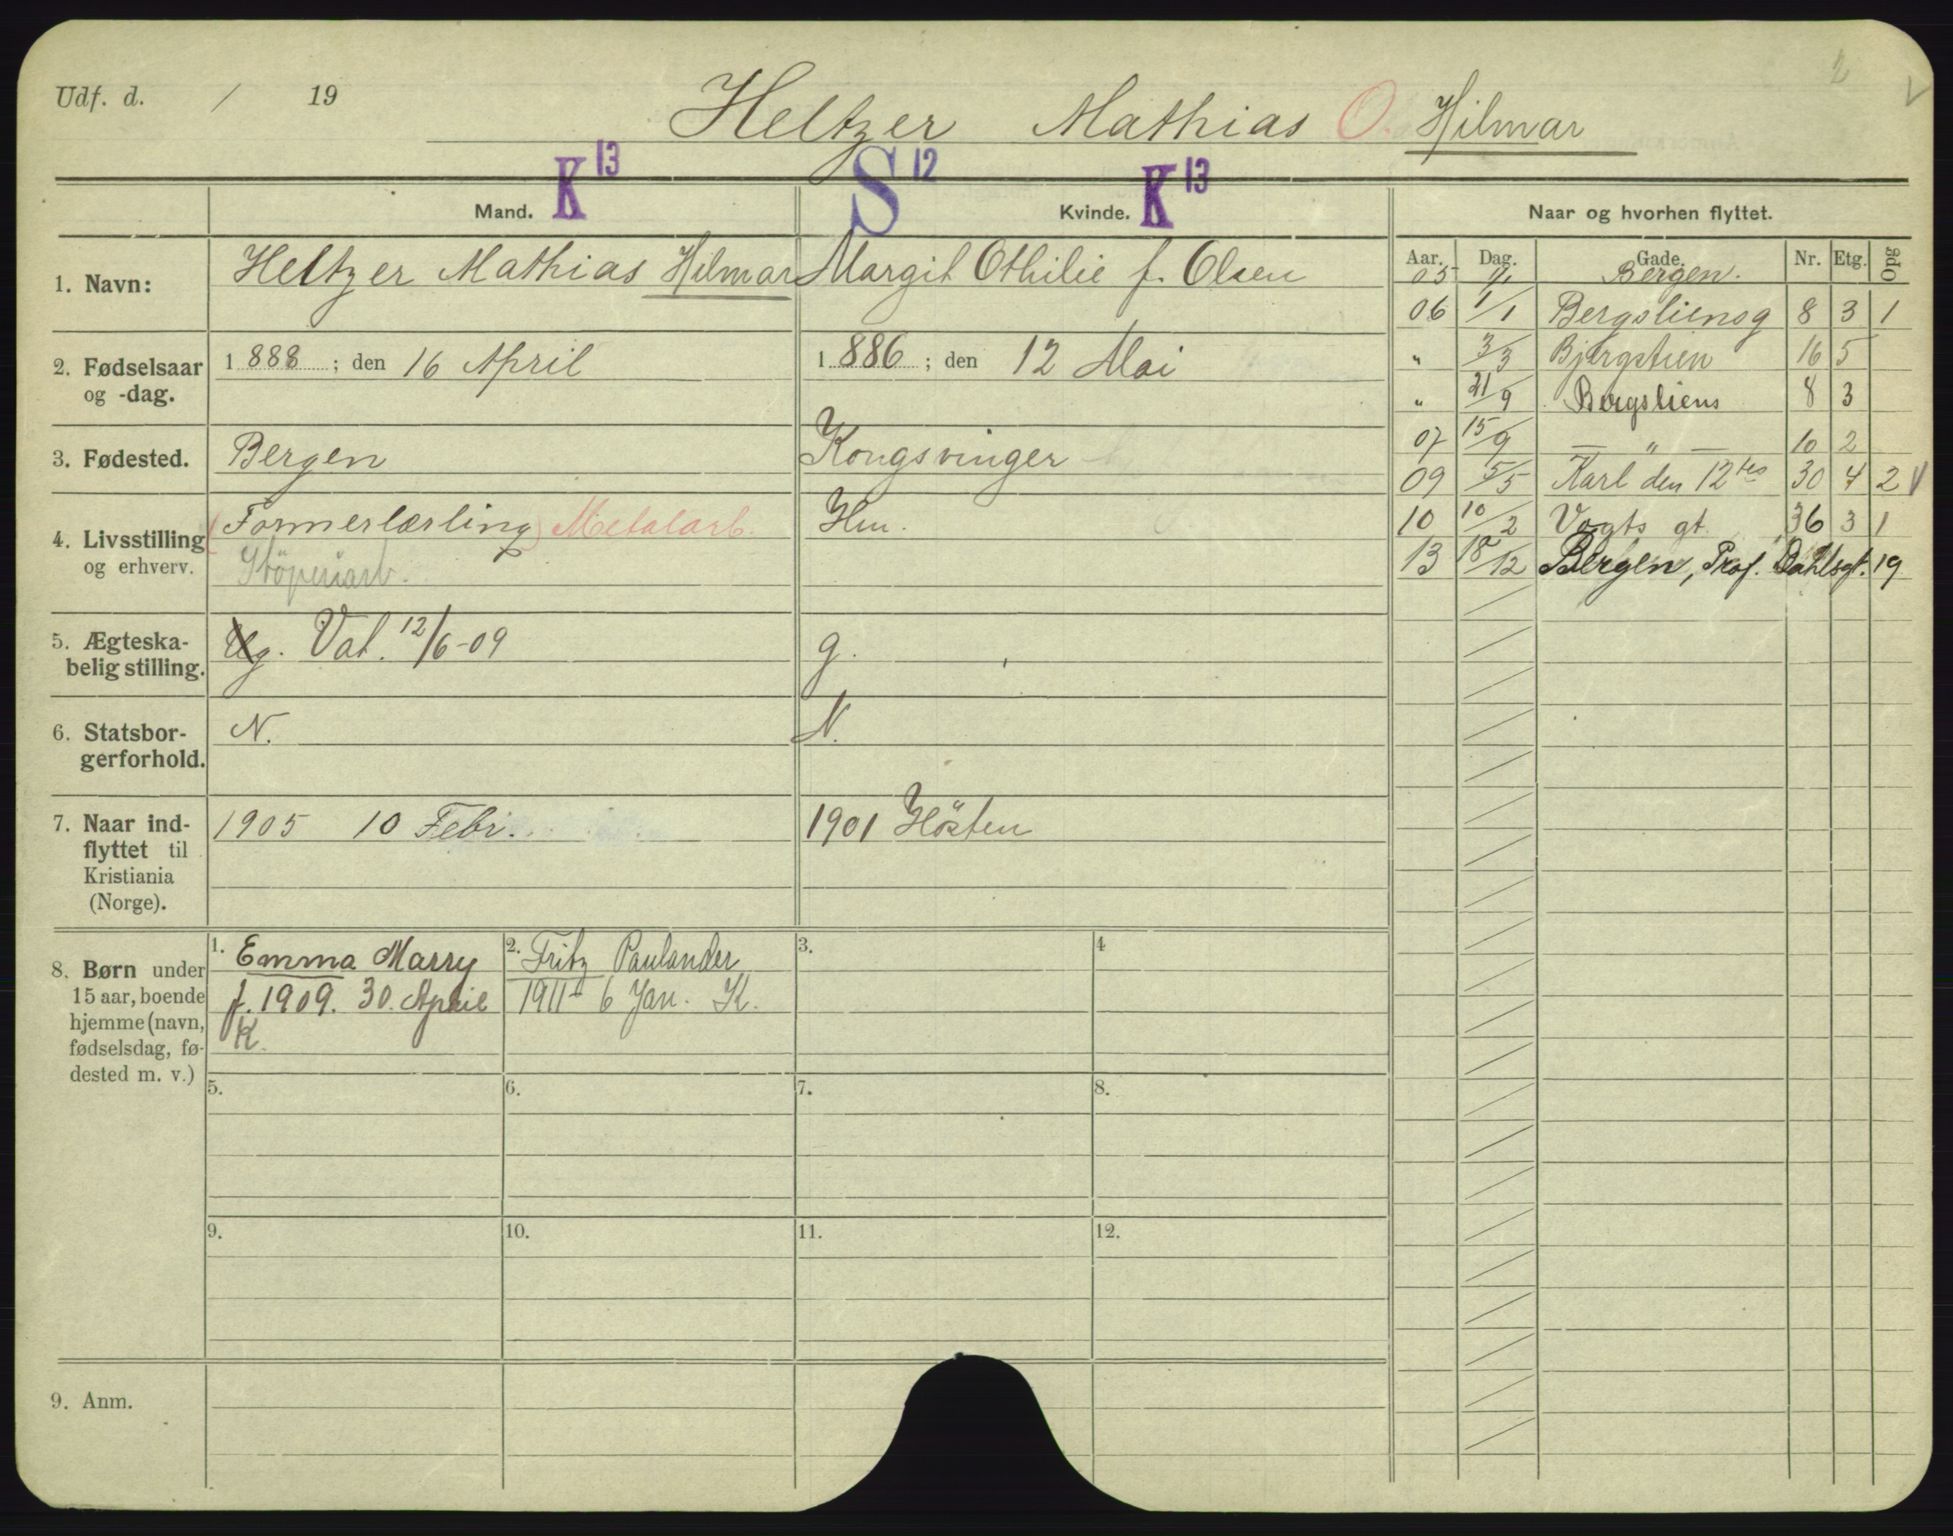 Udf. d. / 19 Heltzer Mathias O. Hilmar 2 V
K 13 S 12 K 13
Mand. Kvinde. Naar og hvorhen flyttet.
1. Navn: Heltzer Mathias Hilmar Margit Othilie f. Olsen
2. Fødselsaar og -dag. 1888; den 16 April 1886; den 12 Mai
3. Fødested. Bergen Kongsvinger
4. Livsstilling og erhverv. (Formerlærling) Metalarb. Hu.
Støperiarb.
5. Ægteska-
belig stilling. Ug. Vat. 12/6-09 g.
6. Statsbor-
gerforhold. N. N.
7. Naar ind-
flyttet til
Kristiania
(Norge). 1905 10 Febr. 1901 Hösten
8. Børn under
15 aar, boende
hjemme (navn,
fødselsdag, fø-
dested m. v.)
1. Emma Marry
f. 1909. 30. April
K.
2. Fritz Paulander
1911 6 Jan. K.
3.
4
5.
6.
7.
8.
9.
10.
11.
12.
9. Anm.
Aar. Dag. Gade. Nr. Etg. Opg
05 1/1 Bergen.
06 1/1 Bergsliensg 8 3 1
" 3/3 Bjergstien 16 5
" 21/9 Bergsliens 8 3
07 15/9 — " — 10 2
09 5/5 Karl den 12tes 30 4 2 V
10 10/2 Vogts gt. 36 3 1
13 18/12 Bergen, Prof. Dahlsgt. 19